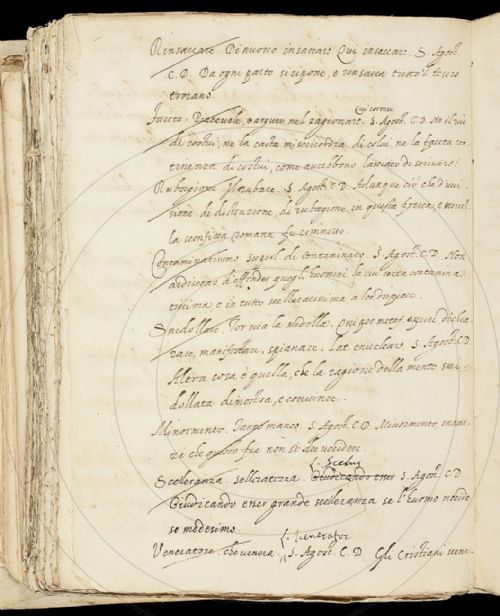 Rinsaccare. Di nuovo insaccare. Qui insaccare. S. Agost.
C. D. Da ogni parte si ripone, e rinsacca tutto 'l tesoro
troiano.
Faceto. Piacevole, e arguto nel ragionare. Qui cortese S. Agost. C. D. Ne il
di costui, ne la casta misericordia di colui ne la faceta con
tinenza di costui, come avrebbono lasciato di scrivere!
Rubagione. Il rubare. S. Agost. C. D. Adunque ciò che d'ucci
sione di distruzione, di rubagione, in questa fresca, e novel
la sconfitta Romana fu commesso.
Contaminatissimo superl. di Contaminato. S. Agost. C. D. Non
ardiscano d'offender quegli Huomini la cui vita contamina
tissima, e in tutto scelleratissima a lor dispiace.
Smidollare. Tor via la midolla. Qui per metaf. dichia
rare, manifestare, spianare. Lat. enucleare. S. Agost. C. D.
Altra cosa è quella, che la ragione della mente smi
dollata dimostra, e convince.
Minormente. Tanto manco. S. Agost. C. D. Minormente innan
zi che questo fia non si dee uccidere
Scelleranza scelleratezza. L. Scelus S. Agost. C. D.
Giudicando esser grande scelleranza se l'huomo uccide
se medesimo.
Veneratore che venera. L. Venerator S. Agost. C. D. Gli Cristiani vene-